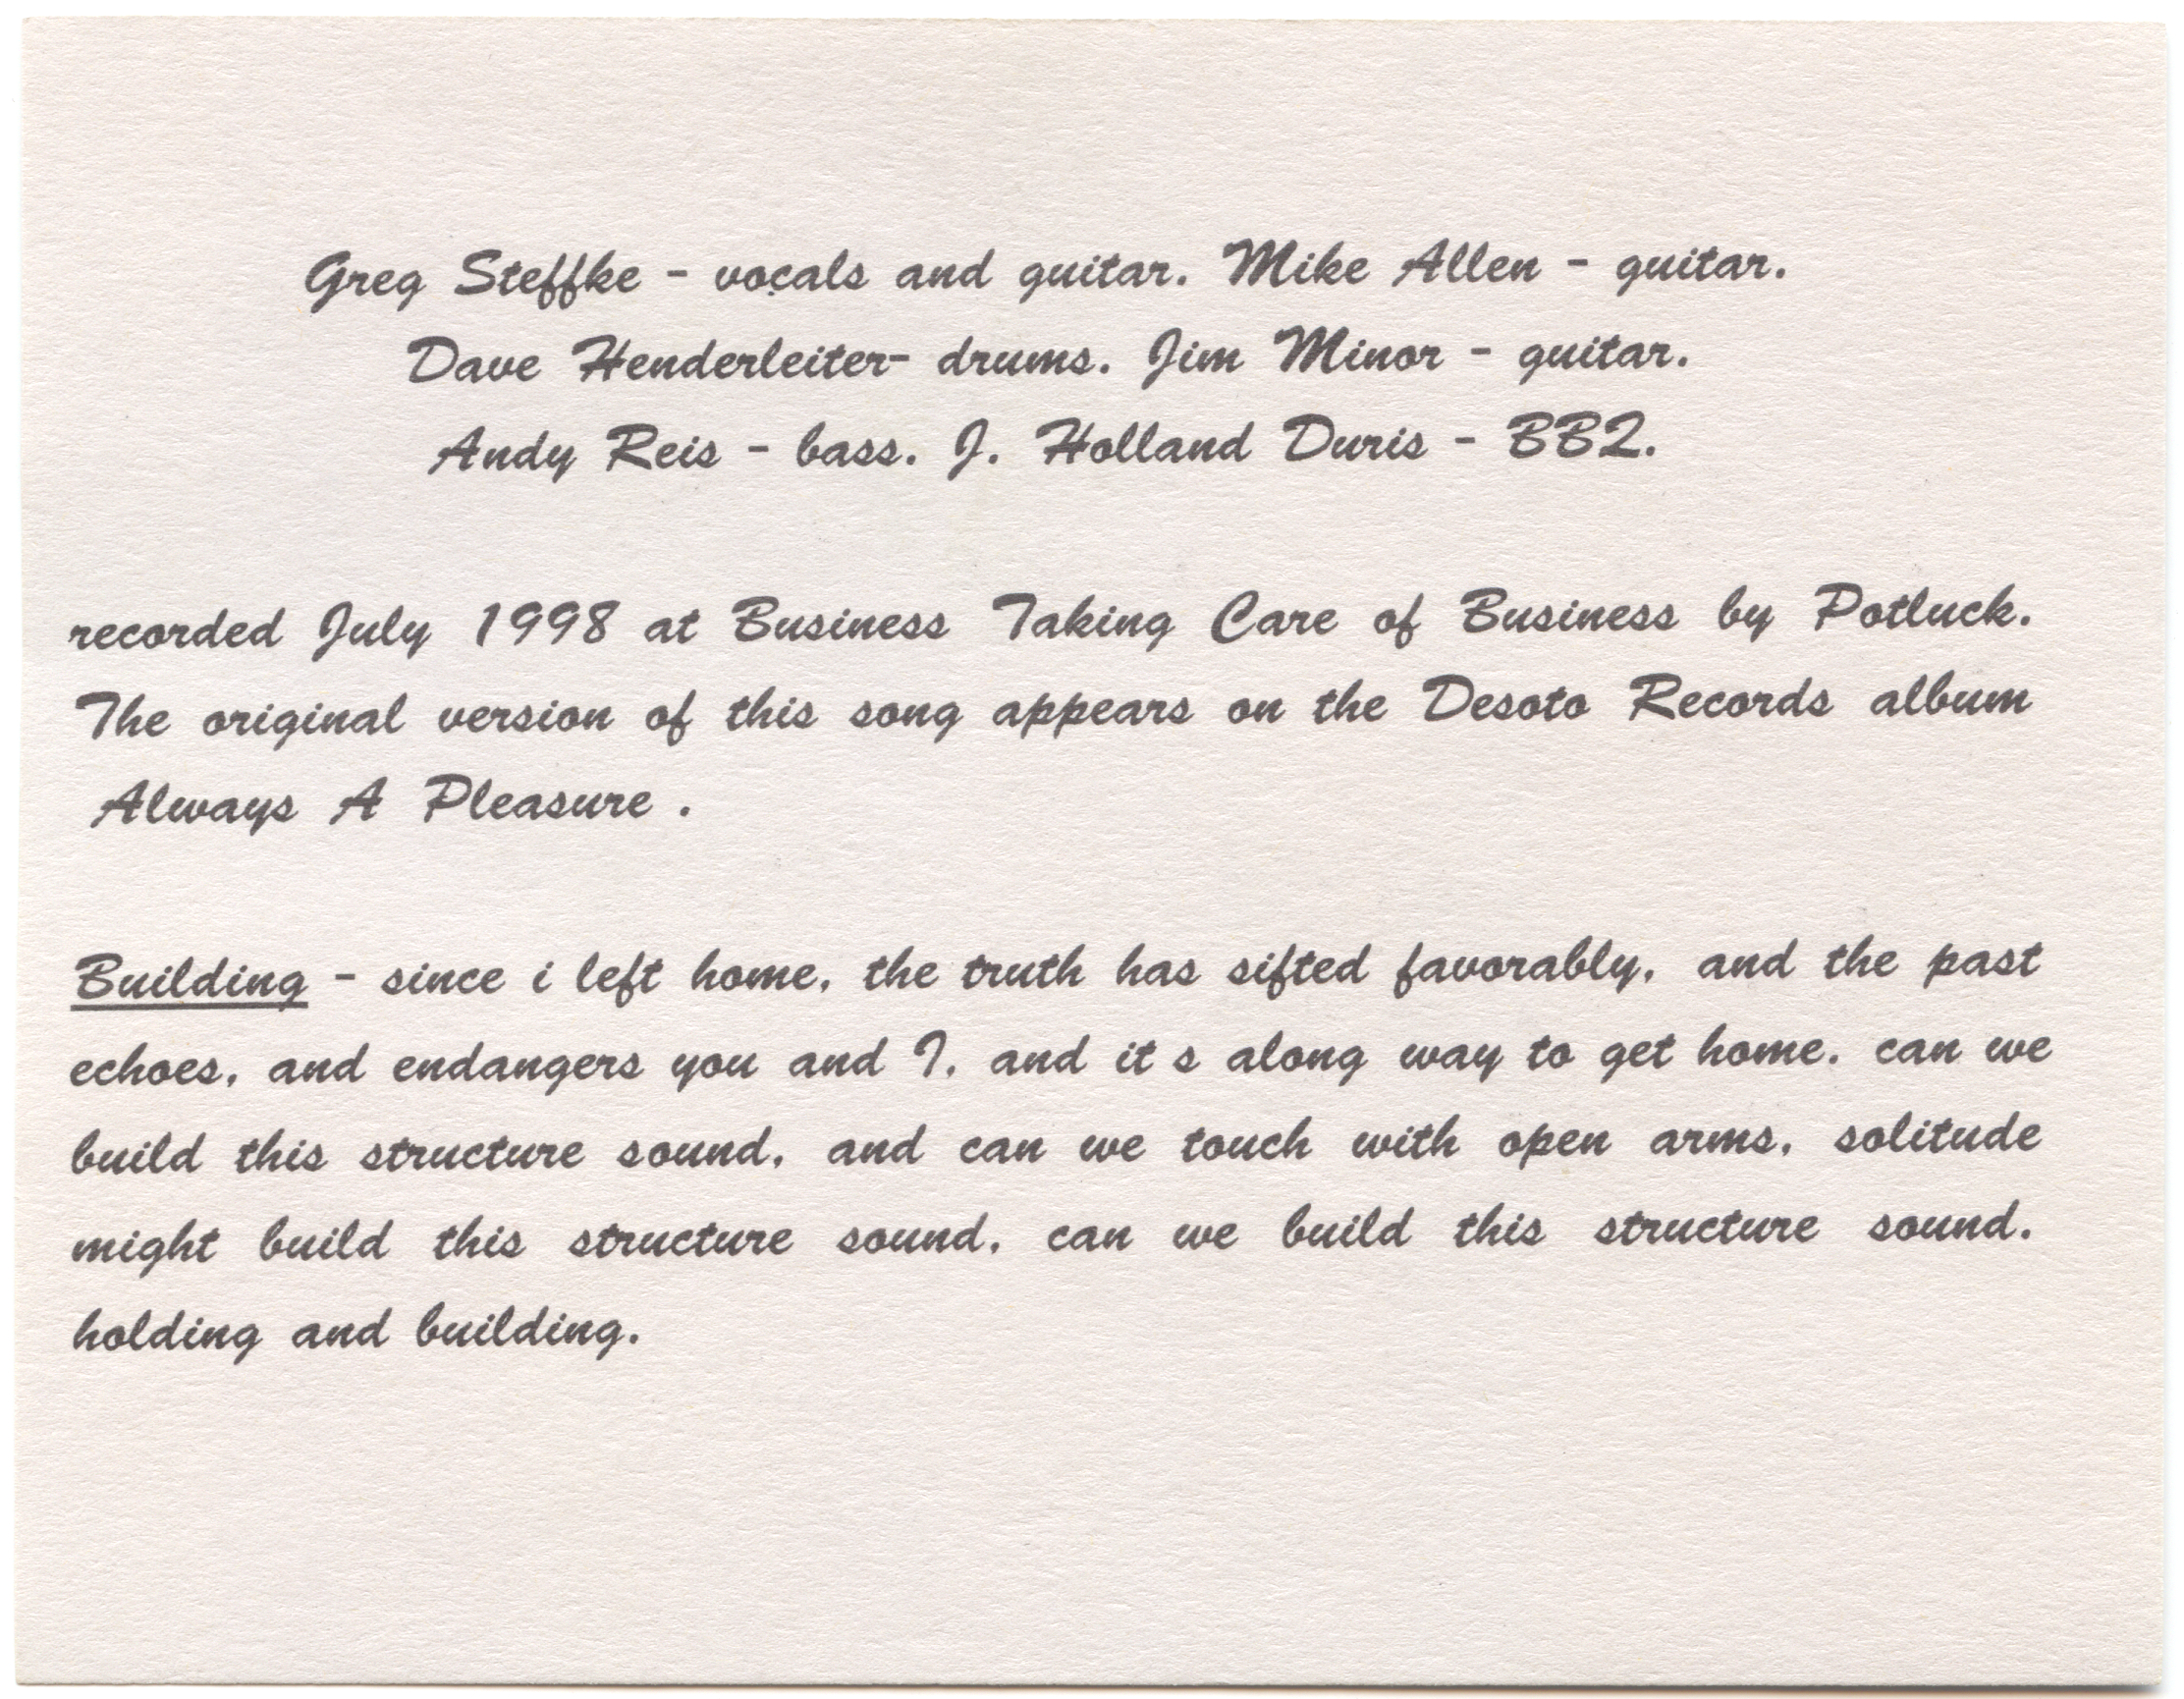 Greg Steffke - vocals and guitar. Mike Allen - guitar.
Dave Henderleiter- drums. Jim Minor - guitar.
Andy Reis - bass. J. Holland Duris - BBQ.
recorded July 1998 at Business Taking Care of Business by Potluck.
The original version of this song appears on the Desoto Records album
Always A Pleasure .
Building - since i left home, the truth has sifted favorably, and the past
echoes, and endangers you and I, and it s along way to get home. can we
build this structure sound, and can we touch with open arms, solitude
might build this structure sound, can we build this structure sound.
holding and building.